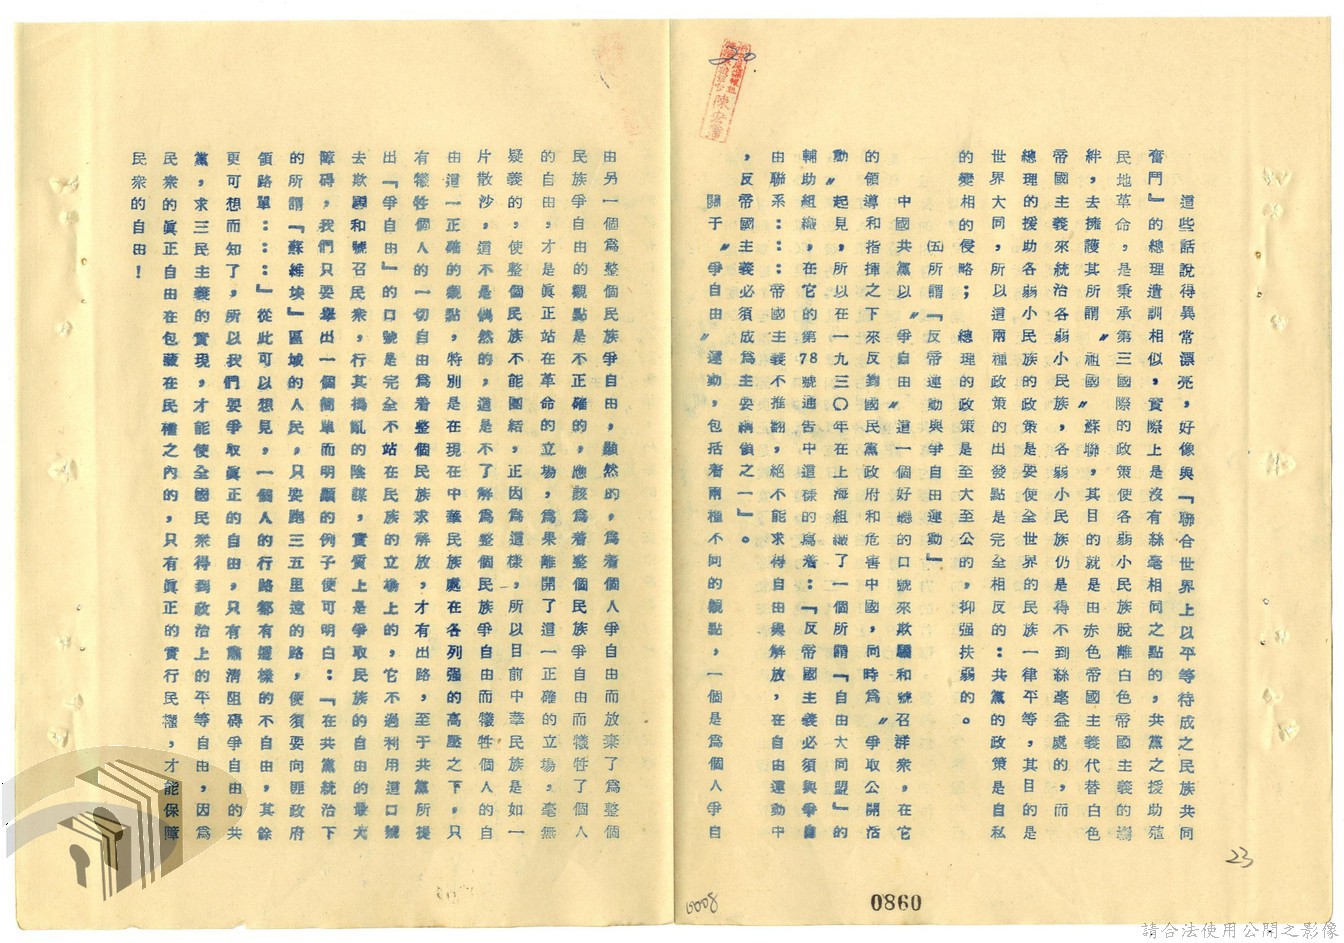 這些話說得異常漂亮，好像與『聯合世界上以平等待成之民族共同
奮鬥』的總理遺訓相似，實際上是沒有絲毫相同之點的，共黨之援助殖
民地革命，是秉承第三國際的政策使各弱小民族脫離白色帝國主義的羈
絆，去擁護其所謂〝祖國〞蘇聯，其目的就是由赤色帝國主義代替白色
帝國主義來統治各弱小民族，各弱小民族仍是得不到絲毫益處的，而
總理的援助各弱小民族的政策是要使全世界的民族一律平等，其目的是
世界大同，所以這兩種政策的出發點是完全相反的：共黨的政策是自私
的變相的侵略；　總理的政策是至大至公的，抑强扶弱的。
㈤所謂『反帝運動與爭自由運動』
中國共黨以〝爭自由〞這一個好聽的口號來欺騙和號召羣衆，在它
的領導和指揮之下來反對國民黨政府和危害中國，同時為〝爭取公開活
動〞起見，所以在一九三〇年在上海組織了一個所謂『自由大同盟』的
輔助組織，在它的第78號通告中這樣的寫着：『反帝國主義必須與爭自
由聯系：：：帝國主義不推翻，絕不能求得自由與解放，在自由運動中
，反帝國主義必須成為主要綱領之一』。
關于〝爭自由〞運動，包括着兩種不同的觀點，一個是為個人爭自
由另一個為整個民族爭自由，顯然的，為着個人爭自由而放棄了為整個
民族爭自由的觀點是不正確的，應該為着整個民族爭自由而犧牲了個人
的自由，才是眞正站在革命的立塲，為果離開了這一正確的立塲，毫無
疑義的，使整個民族不能團結，正因為這樣，所以目前中華民族是如一
片散沙，這不是偶然的，這是不了解為整個民族爭自由而犧牲個人的自
由這一正確的觀點，特別是在現在中華民族處在各列强的高壓之下，只
有犧牲個人的一切自由為着整個民族求解放，才有出路，至于共黨所提
出『爭自由』的口號是完全不站在民族的立塲上的，它不過利用這口號
去欺騙和號召民衆，行其搗亂的陰謀，實質上是爭取民族的自由的最大
障碍，我們只要舉出一個簡單而明顯的例子便可明白：『在共黨統治下
的所謂『蘇維埃』區域的人民，只要跑三五里遠的路，便須要向匪政府
領路單：：：』從此可以想見，一個人的行路都有這樣的不自由，其餘
更可想而知了，所以我們要爭取眞正的自由，只有肅清阻碍爭自由的共
黨，求三民主義的實現，才能使全國民衆得到政治上的平等自由，因為
民衆的眞正自由在包藏在民權之內的，只有眞正的實行民權，才能保障
民衆的自由！
20
陳宏
23
0008
0860
請合法使用公開之影像